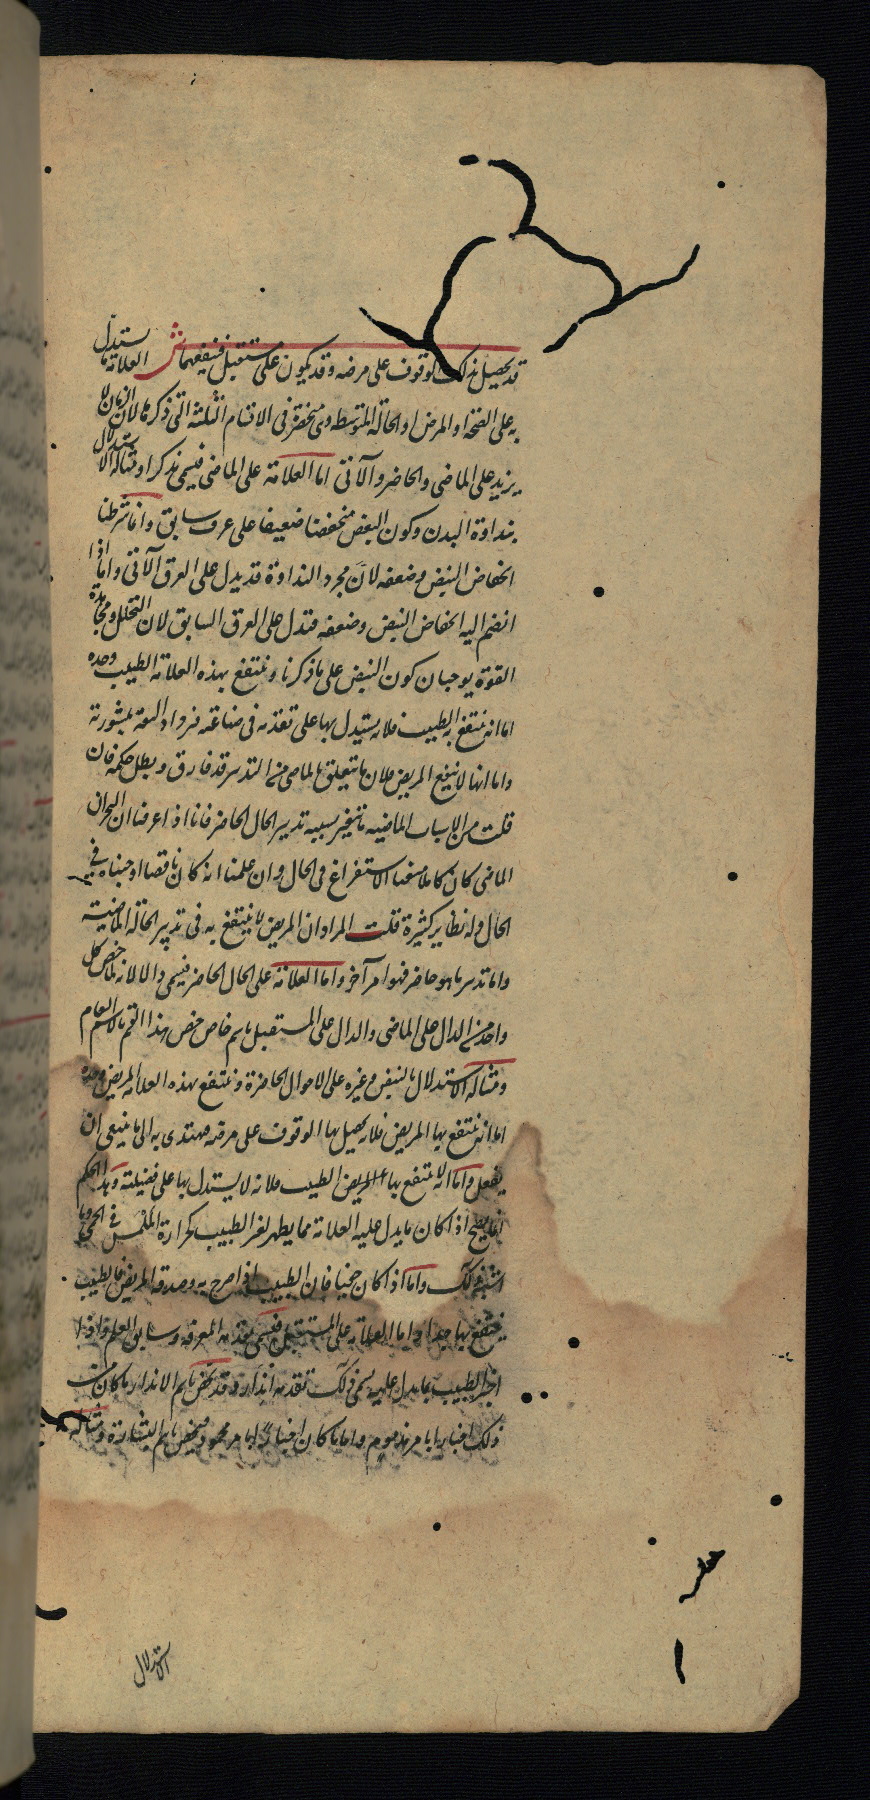 قد يحصل بذلك الوقوف على مرضه وقد يكون على مستقبل فينفعهما ش العلامة ما يستدل
به على الصحة او المرض او الحالة المتوسطه وهى منحصرة فى الاقسام الثلثة التى ذكرها لان الزمان لا
يزيد على الماضى والحاضر والآتى اما العلامة على الماضى فيسمى مذكرا ومثاله الاستدلال
بنداوة البدن وكون النبض منخفضا ضعيفا على عرق سابق وانما شرطنا
انخفاض النبض وضعفه لان مجرد النداوة قد يدل على العرق الآتى واما اذا
انضم اليه انخفاض النبض وضعفه فتدل على العرق السابق لان التحلل ومجاهدة
القوة يوجبان كون النبض على ما ذكرنا وينتفع بهذه العلامة الطبيب وحده
اما انه ينتفع به الطبيب فلانه يستدل بها على تقدمه فى صناعته فزواد الثقة بمشورته
واما انها لا ينفع المريض فلان ما يتعلق بالماضى من التدبير قد فارق وبطل حكمه فان
قلت من الاسباب الماضيه ما يتغير بسببه تدبير الحال الحاضر فانا اذا عرفنا ان البحران
الماضى كان كاملا منعنا الاستفراغ فى الحال وان علمنا انه كان ناقصا اوجبناه فى
الحال وله نظاير كثيرة قلت المراد ان المريض لا ينتفع به فى تدبير الحالة الماضيته
واما تدبير ما هو حاضر فهو امر آخر واما العلامة على الحال الحاضر فيسمى دالا لانه لما خص كل
واحد من الدال على الماضى والدال على المستقبل باسم خاص خص هذا القسم بالاسم العام
ومثاله الاستدلال بالنبض وغيره على الاحوال الحاضرة وينتفع بهذه العلامة المريض وحده
اما انه ينتفع بها المريض فلانه يحصل بها الوقوف على مرضه فيهتدى به الى ما ينبغى ان
يفعل واما انه لا ينتفع بها الطبيب فلانه لا يستدل بها على فضيلته وهذا الحكم
انما يصح اذا كان ما يدل عليه العلامة مما يظهر لغير الطبيب كحرارة الملمس فى الحمى وما
اشبه ذلك واما اذا كان خفيا فان الطبيب اذا صرح به وصدقه المريض فالطبيب
ينتفع بها جدا واما العلامة على المستقبل فيسمى تقدمه المعرفه وسابق العلم واذا
اخبر الطبيب بما يدل عليه يسمى ذلك تقدمه انذار وقد يخص باسم الانذار ما كان من
ذلك اخبارا بامر مذموم واما ما كان اخبارا بامر محمود فيخص باسم البشارة ومثاله
الاستدلال